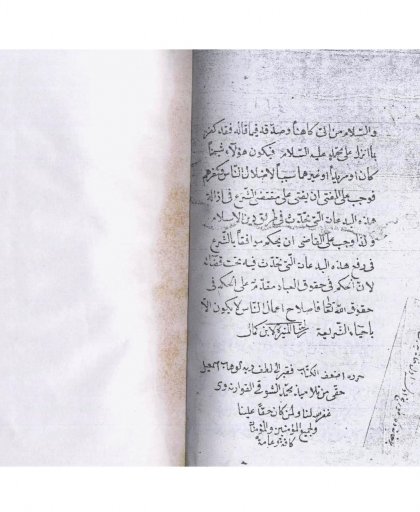 والسلام من اتى كاهنا وصدقه فيما قاله فقد كفر
بما انزل على محمد عليه السلام فيكون هؤلاء شيخا
كان او مريدا او غيرهما سببا لاضلال الناس وكفرهم
فوجب على المفتى ان يفتى على مقتضى الشرع فى ازالة
هذه البدعات التى تحدث فى طريق دين الاسلام
وكذا وجب على القاضى ان يحكم موافقا بالشرع
فى رفع هذه البدعات التى تحدث فيه تحت قضائه
لان الحكم فى حقوق العباد مقدم على الحكم فى
حقوق الله تعالى فاصلاح اعمال الناس لا يكون الا
باحياء الشريعة لابن كمال
حرره اضعف الكتاب فقير
حقى من تلاميذ محمد
غفر لنا ولمن كان حقا علينا
ولجميع المؤمنين والمؤمنات
كافة عامة